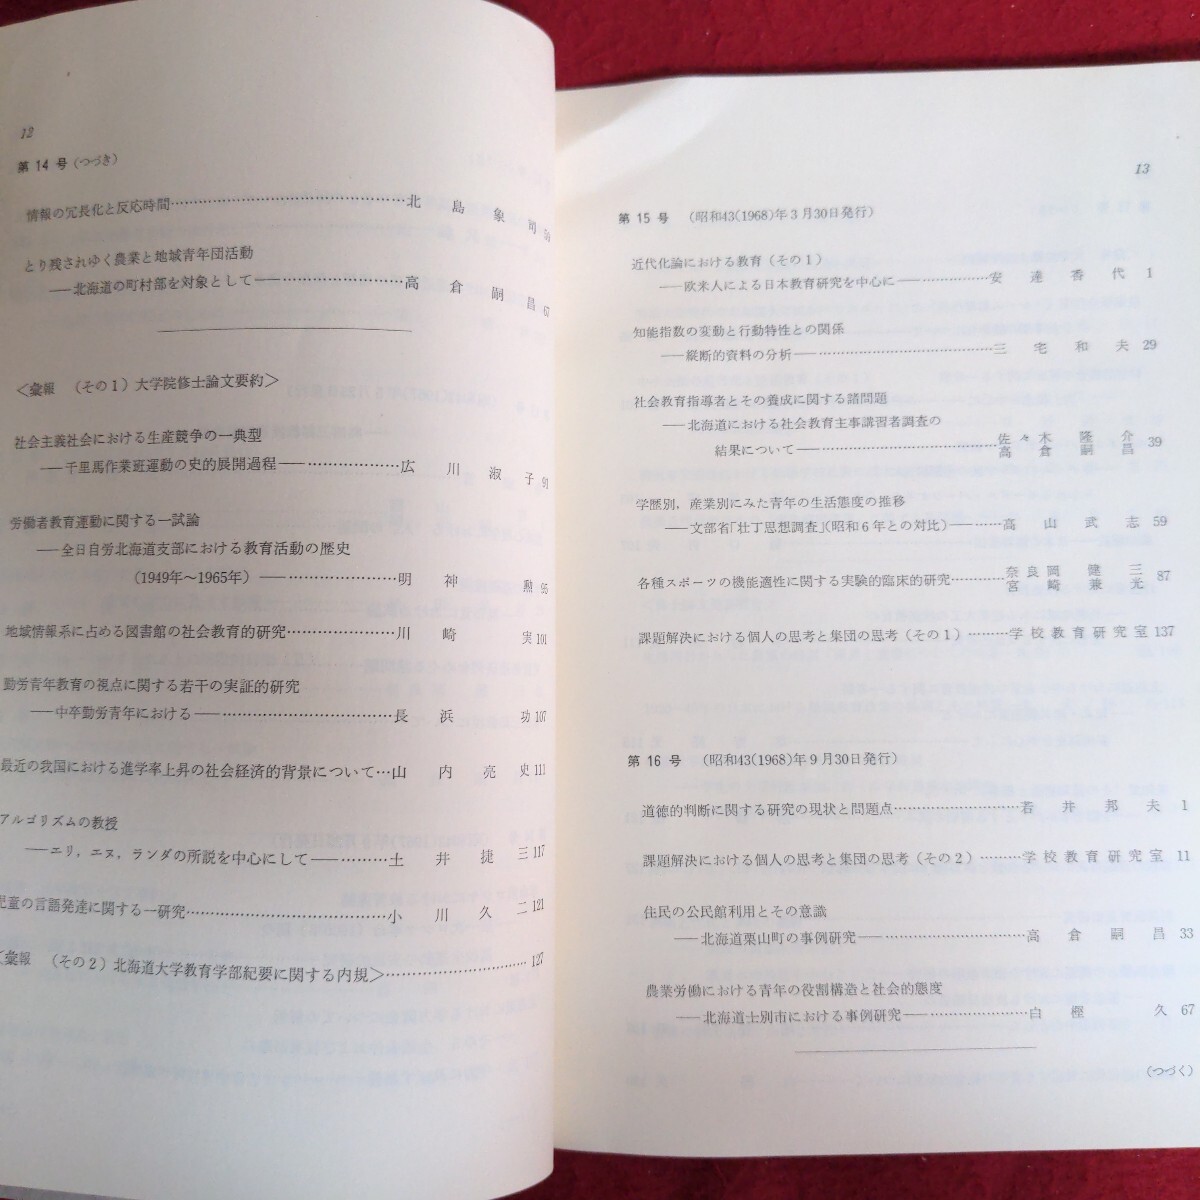 12
第14号(つづき)
情報の冗長化と反応時間……………………………北島象司 55
とり残されゆく農業と地域青年団活動
——北海道の町村部を対象として——…………………高倉嗣昌 67
<彙報 (その1)大学院修士論文要約>
社会主義社会における生産競争の一典型
——千里馬作業班運動の史的展開過程——……………広川淑子 91
労働者教育運動に関する一試論
——全日自労北海道支部における教育活動の歴史
(1949年～1965年)——…………………明神勲 95
地域情報系に占める図書館の社会教育的研究………………川崎実 101
勤労青年教育の視点に関する若干の実証的研究
——中卒勤労青年における——……………………長浜功 107
最近の我国における進学率上昇の社会経済的背景について…山内亮史 111
アルゴリズムの教授
——エリ，エヌ，ランダの所説を中心にして——………土井捷三 117
児童の言語発達に関する一研究……………………………小川久二 121
<彙報 (その2)北海道大学教育学部紀要に関する内規>………………… 127
13
第15号 (昭和43(1968)年3月30日発行)
近代化論における教育(その1)
——欧米人による日本教育研究を中心に——……………安達香代 1
知能指数の変動と行動特性との関係
——縦断的資料の分析——……………………………三宅和夫 29
社会教育指導者とその養成に関する諸問題
——北海道における社会教育主事講習者調査の
結果について——……………………………佐々木隆介
高倉嗣昌 39
学歴別，産業別にみた青年の生活態度の推移
——文部省「壮丁思想調査」(昭和6年との対比)——……高山武志 59
各種スポーツの機能適性に関する実験的臨床的研究…………奈良岡健三
宮崎兼光 87
課題解決における個人の思考と集団の思考(その1)………学校教育研究室 137
第16号 (昭和43(1968)年9月30日発行)
道徳的判断に関する研究の現状と問題点…………………若井邦夫 1
課題解決における個人の思考と集団の思考(その2)………学校教育研究室 11
住民の公民館利用とその意識
——北海道栗山町の事例研究——……………………高倉嗣昌 33
農業労働における青年の役割構造と社会的態度
——北海道士別市における事例研究——………………白樫久 67
(つづく)